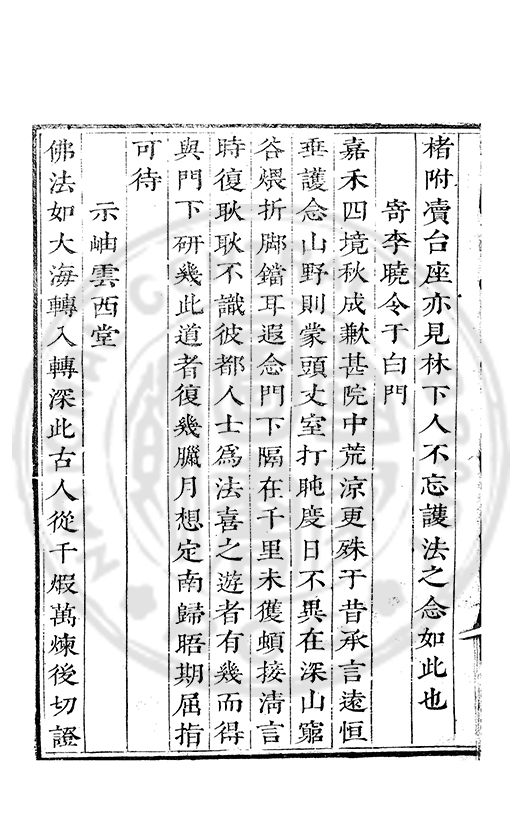 楮附凟台座亦見林下人不忘護法之念如此也
寄李曉令于白門
嘉禾四境秋成歉甚院中荒涼更殊于昔承言遠恒
垂護念山野則蒙頭丈室打盹度日不異在深山窮
谷煨折脚鐺耳遐念門下隔在千里未獲頻接清言
時復耿耿不識彼都人士為法喜之遊者有幾而得
與門下研幾此道者復幾臘月想定南歸晤期屈指
可待
示岫雲西堂
佛法如大海轉入轉深此古人從千煅萬煉後切證